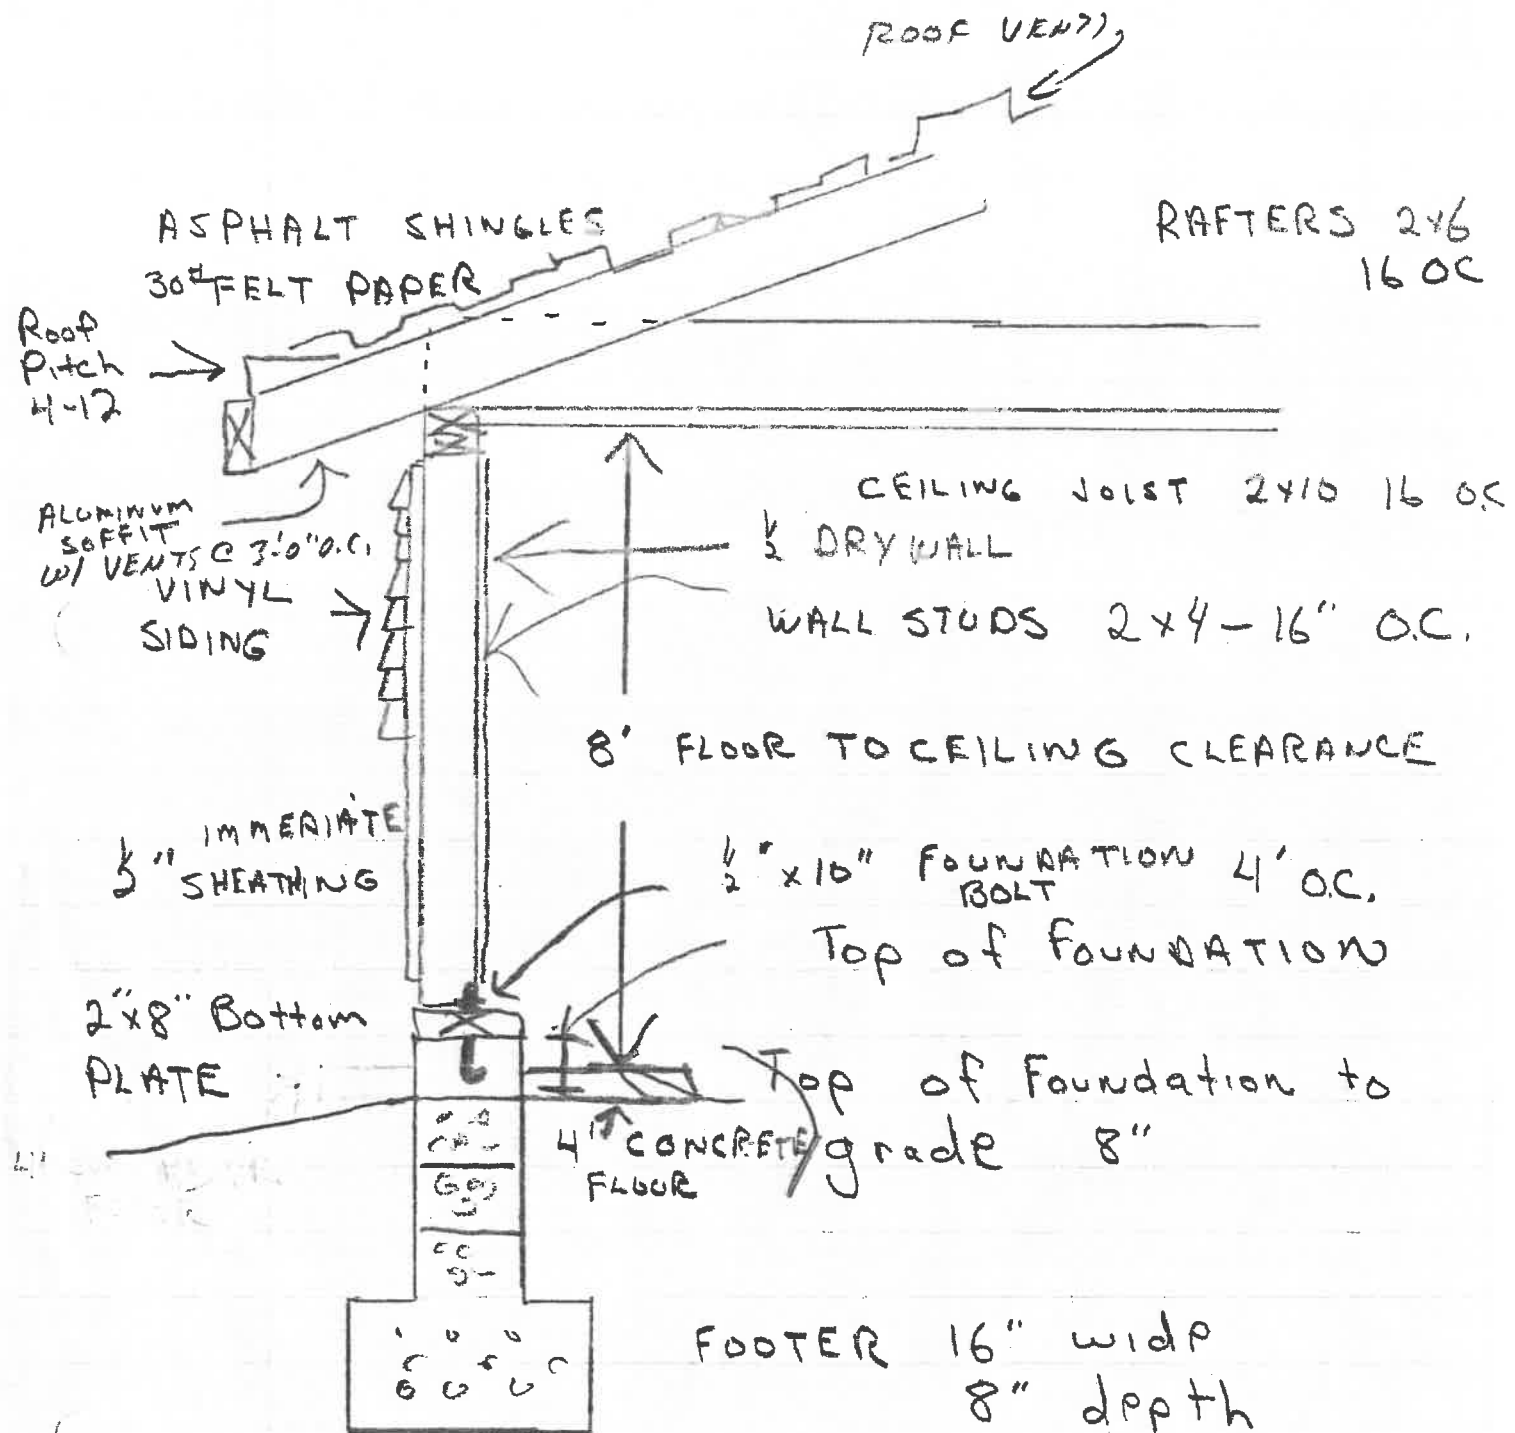 ROOF VENT
ASPHALT SHINGLES
30# FELT PAPER
RAFTERS 2x6
16 OC
Roof
Pitch
4-12
ALUMINUM
SOFFIT
W/ VENTS @ 3'0" O.C.
CEILING JOIST 2x10 16 OC
1/2 DRYWALL
VINYL
SIDING
WALL STUDS 2x4 - 16" O.C.
8' FLOOR TO CEILING CLEARANCE
IMMERIATE
1/2" SHEATHING
1/2" x10" FOUNDATION 4' O.C.
BOLT
Top of FOUNDATION
2"x8" Bottom
PLATE
Top of Foundation to
grade 8"
4" CONCRETE
FLOOR
FOOTER 16" wide
8" depth